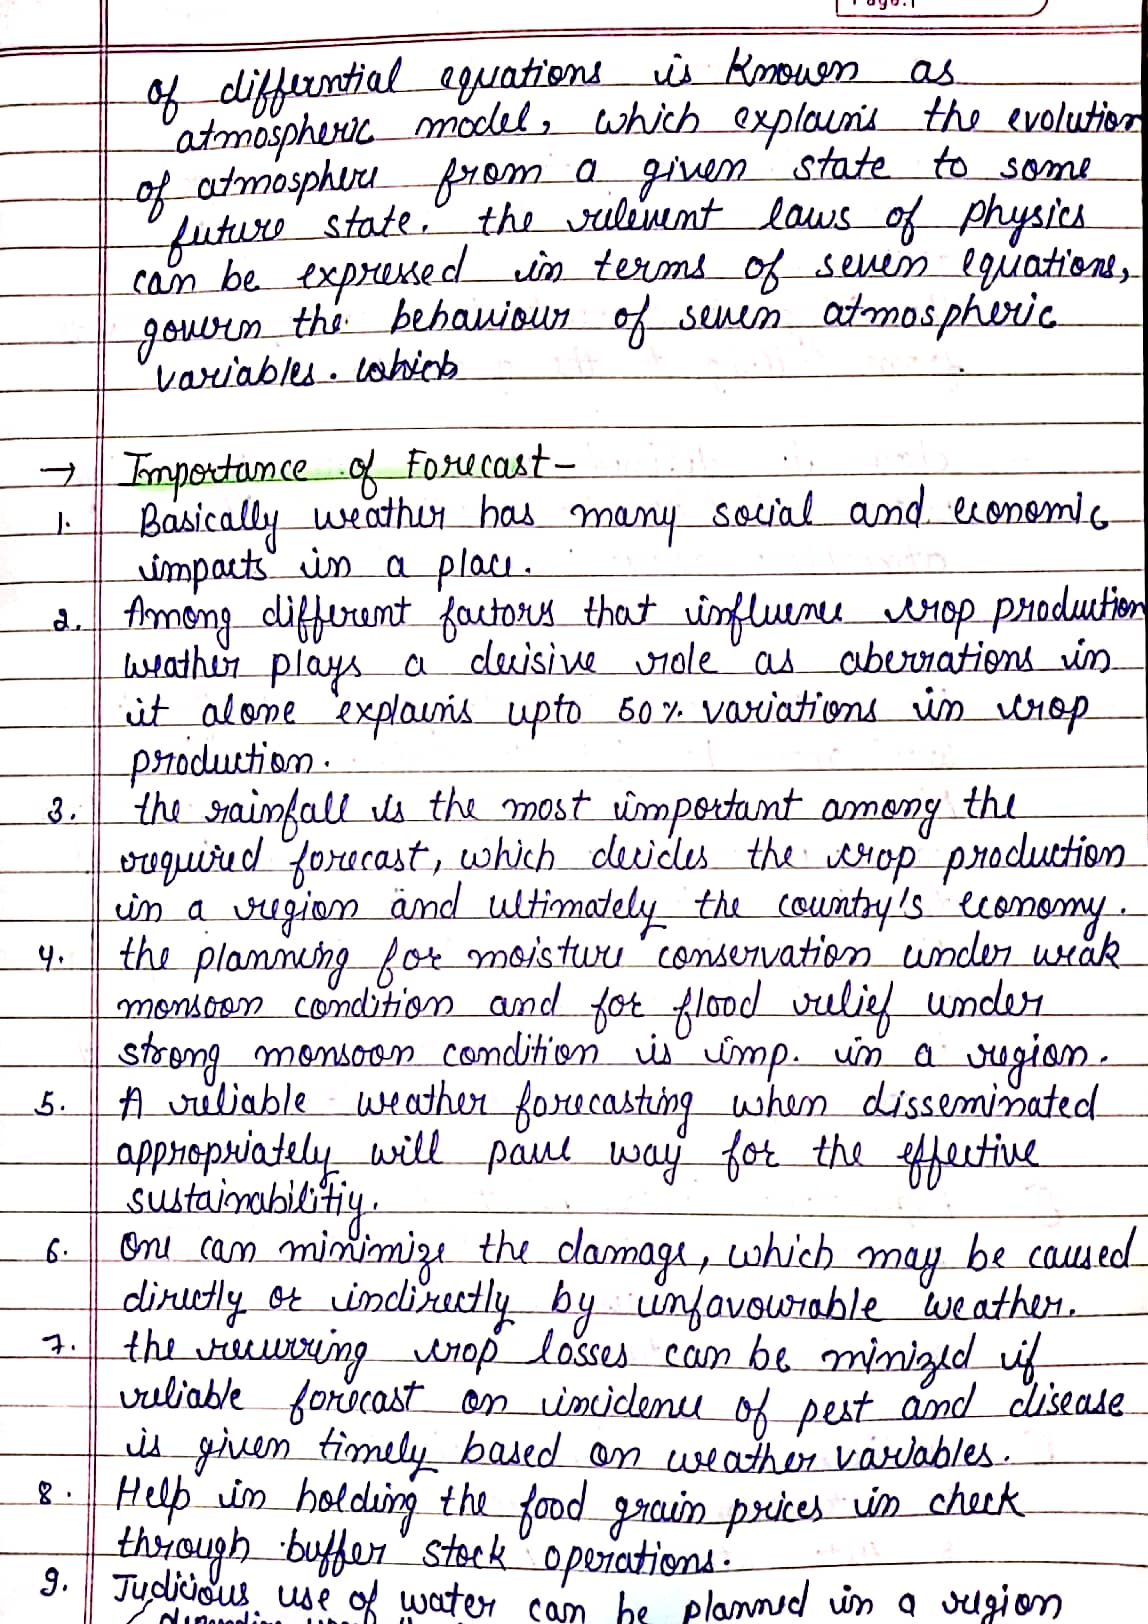 of differntial equations is known as
atmospheric model, which explains the evolution
of atmosphere from a given state to some
future state. the relevent laws of physics
can be expressed in terms of seven equations,
govern the behaviour of seven atmospheric
variables. which
→ Importance of Forecast-
1. Basically weather has many social and economic
impacts in a place.
2. Among different factors that influence crop production
weather plays a decisive role as aberrations in
it alone explains upto 50% variations in crop
production.
3. the rainfall is the most important among the
required forecast, which decides the crop production
in a region and ultimately the country's economy.
4. the planning for moisture conservation under weak
monsoon condition and for flood relief under
strong monsoon condition is imp. in a region.
5. A reliable weather forecasting when disseminated
appropriately will pave way for the effective
sustainabilitiy.
6. One can minimize the damage, which may be caused
directly or indirectly by unfavourable weather.
7. the recurring crop losses can be minized if
reliable forecast on incidence of pest and disease
is given timely based on weather variables.
8. Help in holding the food grain prices in check
through buffer stock operations.
9. Judicious use of water can be planned in a region